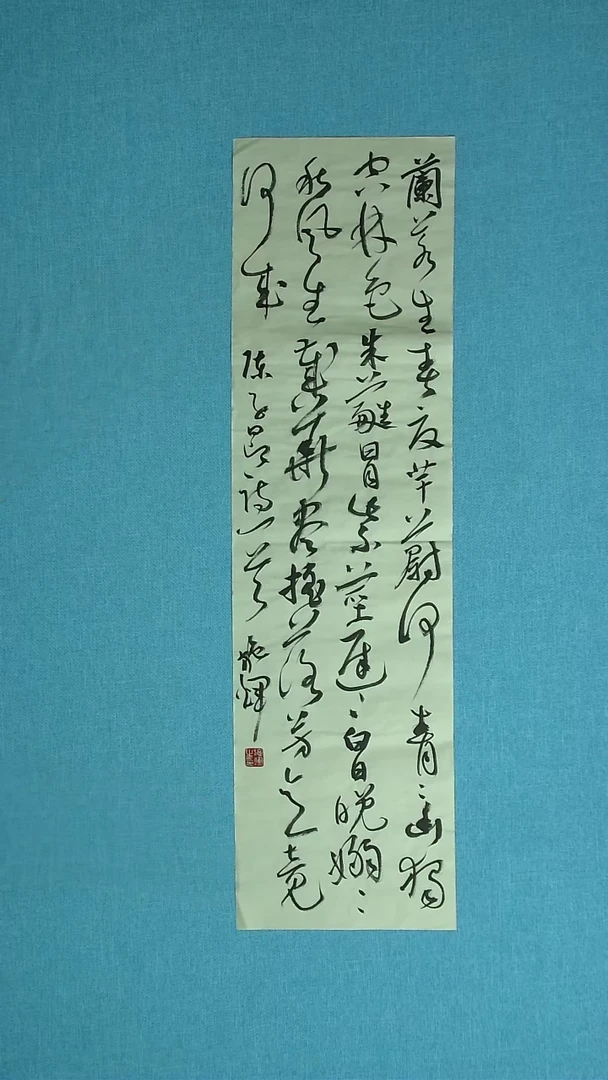 蘭若生春夏芊蔚何青〻幽獨
空林色朱蕤冒紫莖遲〻白日晚嫋〻
秋風生歲華盡搖落芳意竟
何成 陳子昂詩一首